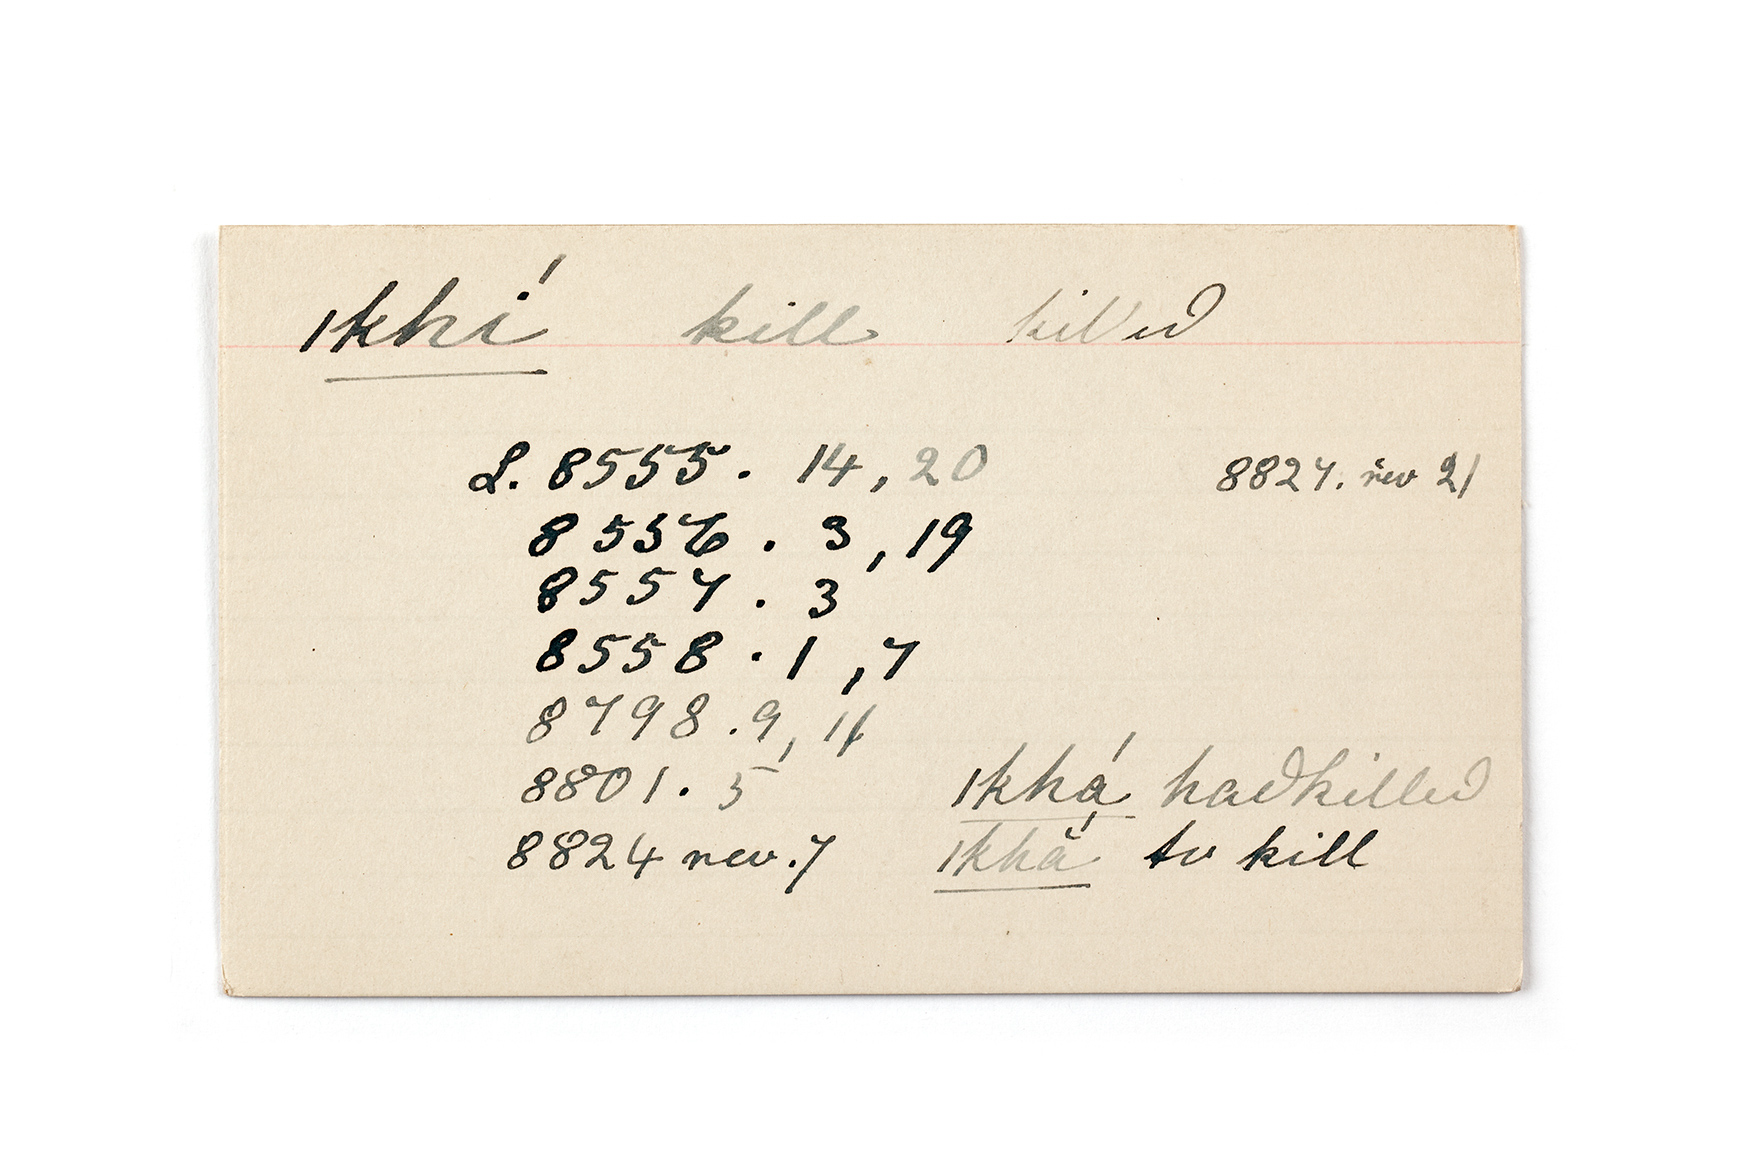 ǀkhí kill killed
L. 8555. 14, 20 8827. rev 21
8556. 3, 19
8557. 3
8558. 1, 7
8798. 9, 11
8801. 5 ǀkhá̤ had killed
8824 rev. 7 ǀkhā to kill